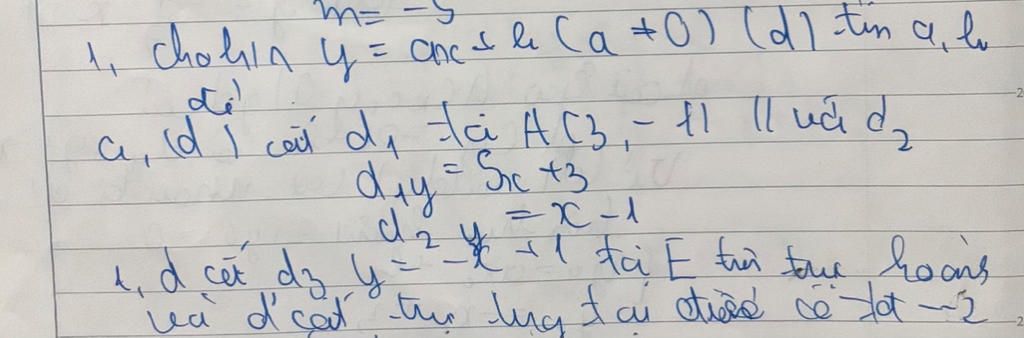 m = -5
1, Cho h/s y = ax + b (a ≠ 0) (d) tìm a, b
để
a, (d) cắt d₁ tại A(3, -1) // và d₂
d₁ y = 5x + 3
d₂ y = x - 1
d cắt d₃ y = -x + 1 tại E trên trục hoành
và d cắt trục tung tại điểm có tđ -2